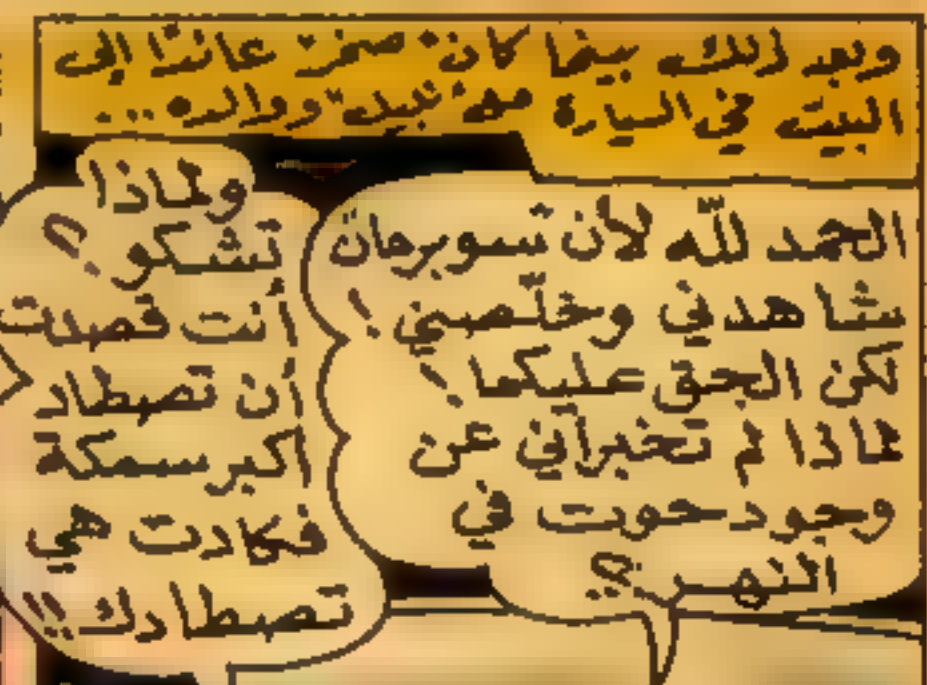 وبعد ذلك بينما كان صخر عائدًا إلى
البيت في السيارة مع نبيل ووالده...
الحمد للّه لأن سوبرمان
شاهدني وخلّصني!
لكن الحق عليكما!
لماذا لم تخبراني عن
وجود حوت في
النهر؟!
ولماذا
تشكو؟
أنت قصدت
أن تصطاد
اكبر سمكة
فكادت هي
تصطادك!!